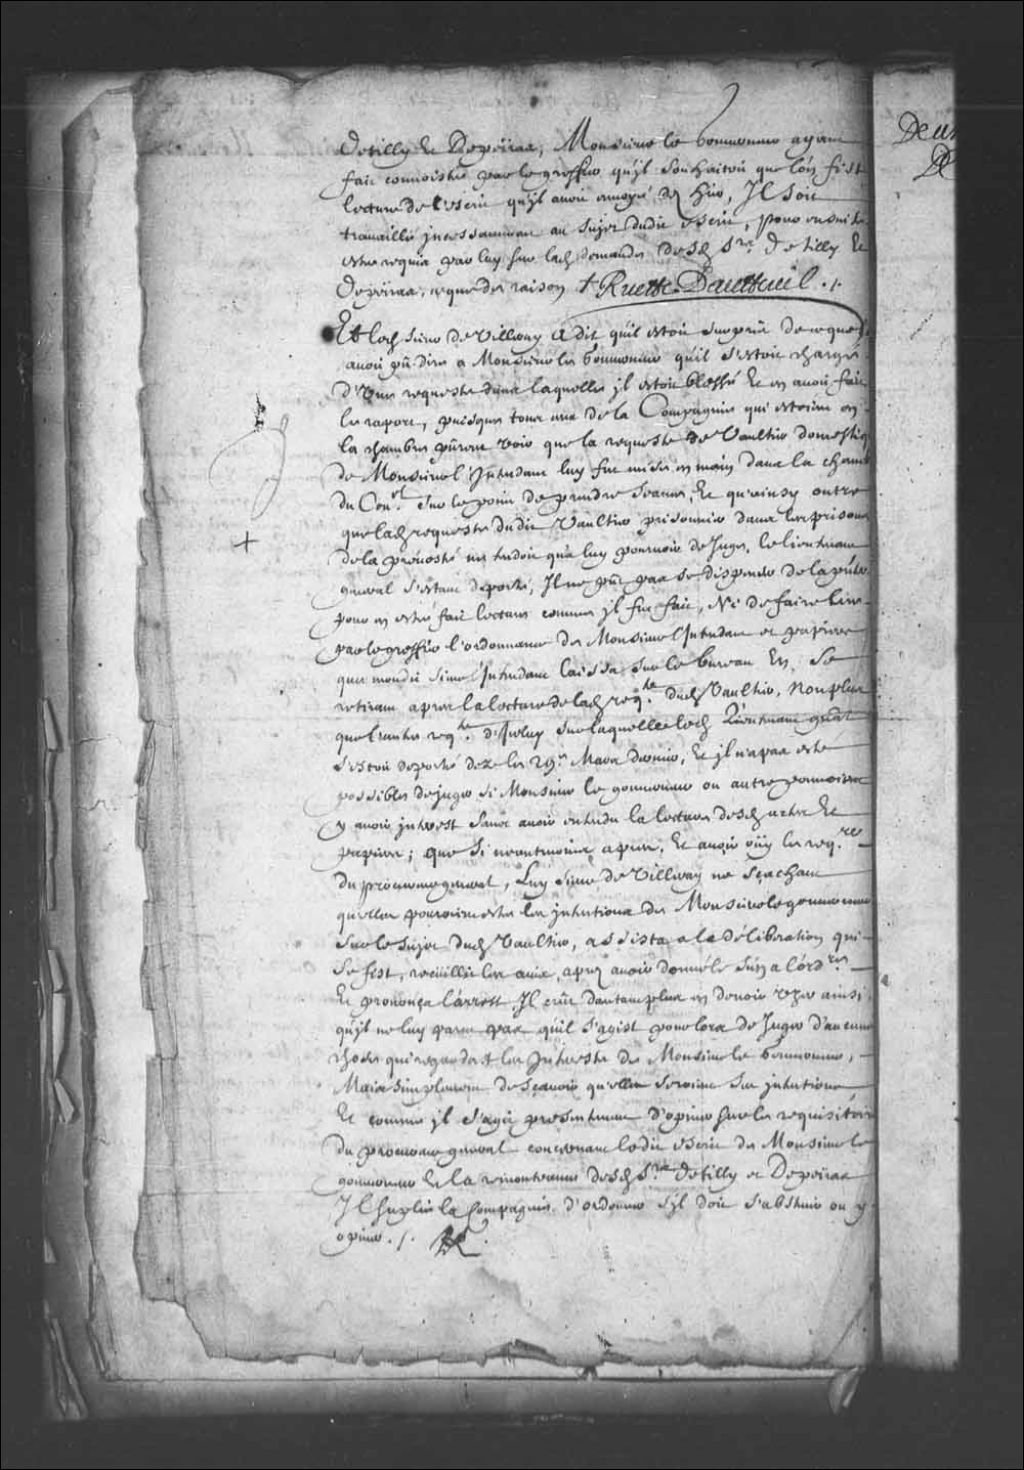 De un
De
detilly Et Depeiras, Monsieur le Gouverneur ayant
fait connoistre par le greffier qu'jl souhaitoit que lon fist
lecture de l'escrit qu'jl auoit enuoyé des hier, Jl soit
trauaillé jncessamment au sujet dudit escrit, pour ensuite
estre requis par luy sur lad. demande desd. Srs. de tilly Et
Depeiras, ce que de raison ./. Ruette Dauteuil ./.
Et led. sieur de Villeray a dit qu'il estoit surpris de ce que l'on
auoit pû dire a Monsieur le Gouverneur qu'il s'estoit chargé
d'Vne requeste dans laquelle jl estoit blessé Et en auoit fait
le raport, puisque tous ceux de la Compagnie qui estoient en
la chambre pûrent voir que la requeste de Vaultier domestiq
de Monsieur l'Jntendant luy fut mise en main dans la chambre
du Conel. sur le point de prendre seance, Et qu'ainsy outre
que lad. requeste dudit Vaultier prisonnier dans les prisons
de la preuosté ne tendoit qu'a luy pouruoir de Juge, le lieutenant
general s'estant deporté, Jl ne pût pas se dispenser de la prendre
pour en estre fait lecture comme jl fut fait, Ni de faire lire
par le greffier l'ordonnance de Monsieur l'Jntendant et papiers
que mondit sieur l'Jntendant laissa sur le bureau En se
retirant apres la lecture de lad. reqte. dud. Vaultier, Non plus
que l'autre reqte. d'Jceluy sur laquelle led. Lieutenant gnâl
s'estoit deporté dez le 29e. Mars dernier, Et jl n'a pas esté
possible de juger si Monsieur le gouuerneur ou autre pouuoient
y auoir jnterest sans auoir entendu la lecture desd. actes Et
papiers; que si neantmoins apres, Et auoir oüy les reqres.
du procureur general, Luy sieur de Villeray ne sçachant
quelles pouroient estre les jntentions de Monsieur le gouuerneur
sur le sujet dud. Vaultier, assista a la déliberation qui
se fist, receüillit les auis, apres auoir donné le sien a l'ordre
Et prononça l'arrest Jl crût d'autant plus en deuoir vzer ainsi
qu'jl ne luy parut pas qu'il s'agist pour lors de Juger d'aucune
chose qui regardast les Jnterests de Monsieur le Gouuerneur,
Mais simplement de sçauoir quelles seroient ses jntentions
Et comme jl s'agit presentement d'opiner sur le requisitoire
du procureur general concernant ledit escrit de Monsieur le
gouuerneur Et la remontrance desd. Srs. Detilly et Depeiras
Jl suplie la Compagnie d'ordonner s'jl doit s'abstenir ou y
opiner ./.